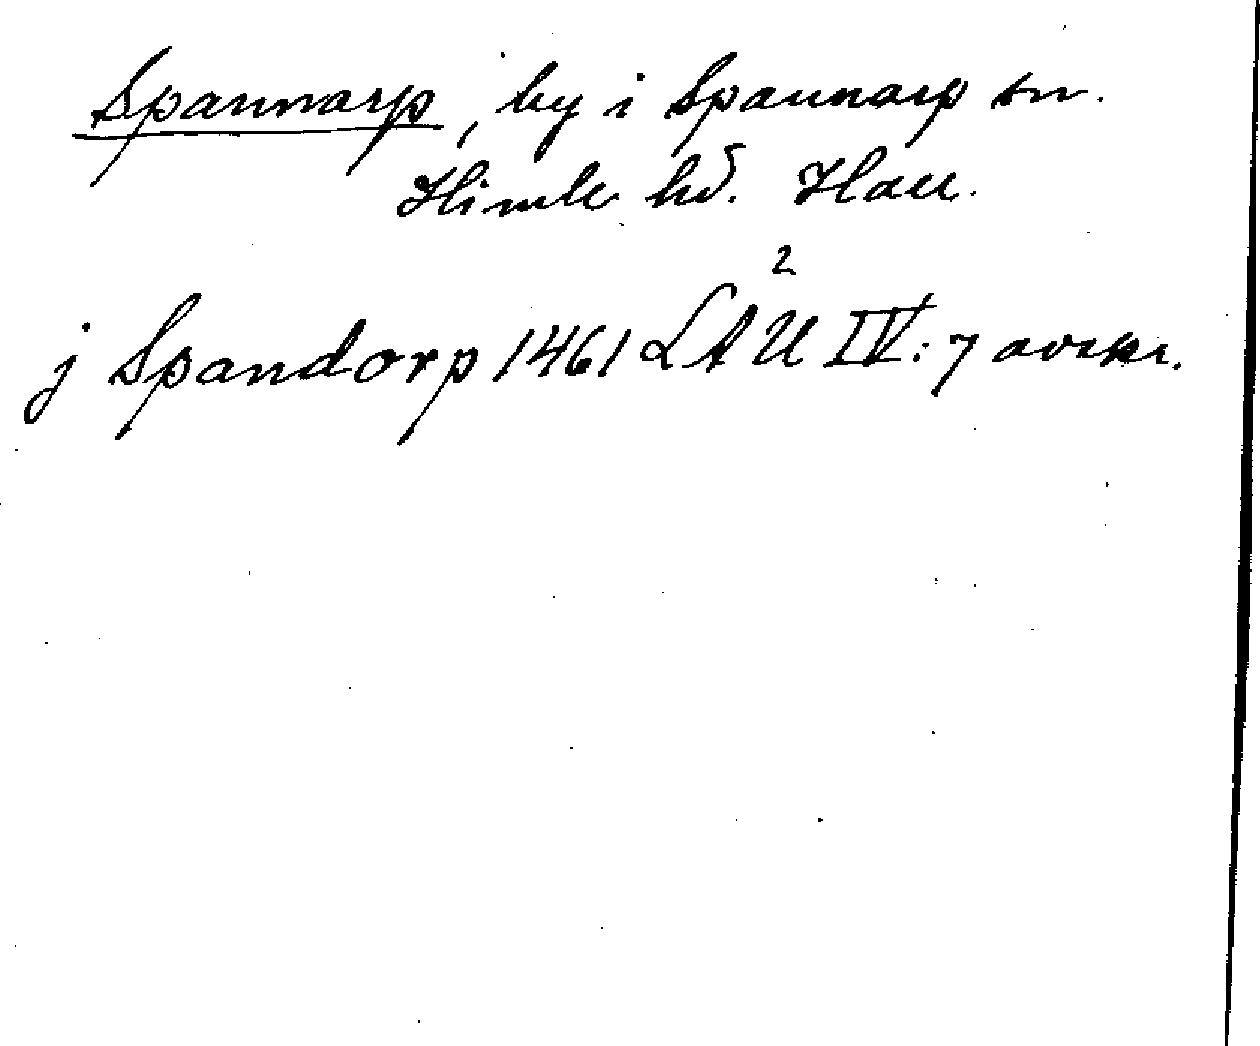 Spannarp, by i Spannarp sn.
Himle hd. Hall.
2
j Spandorp 1461 LAU IV: 7 avskr.